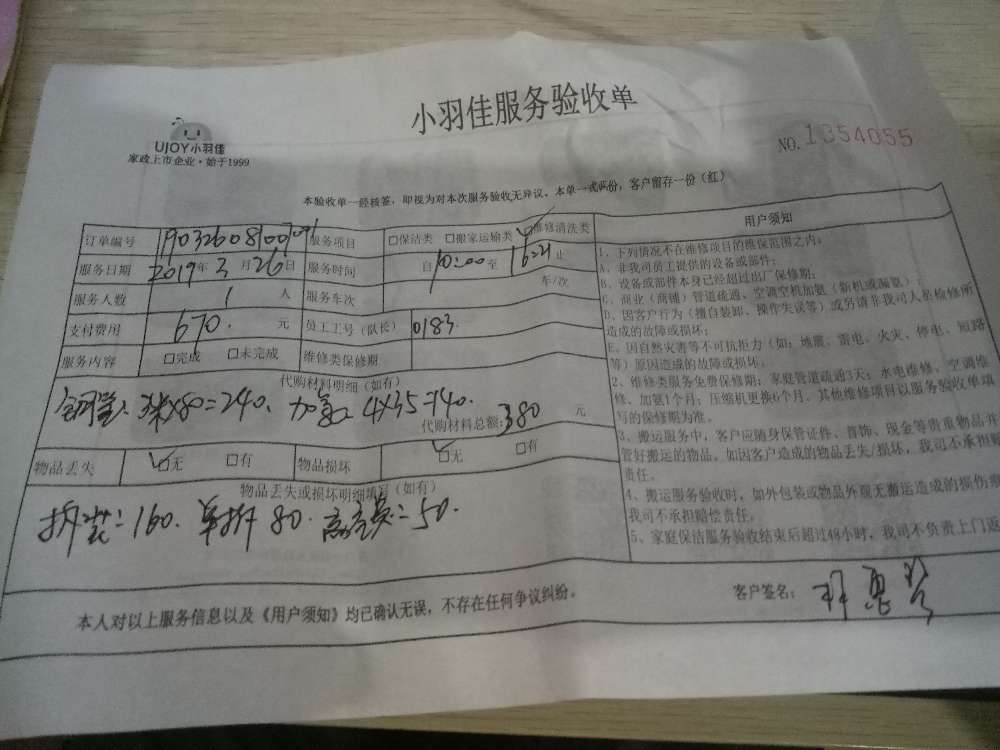 小羽佳服务验收单
UJOY小羽佳
家政上市企业·始于1999
NO. 1354055
本验收单一经核签，即视为对本次服务验收无异议。本单一式两份，客户留存一份（红）
订单编号
服务项目 □保洁类 □搬家运输类 □维修清洗类
服务日期 2019年3月26日 服务时间 自10:00至16:21止
服务人数 1 人 服务车次 车/次
支付费用 670. 元 员工工号（队长） 0183
服务内容 □完成 □未完成 维修类保修期
代购材料明细（如有）
3米x80=240. 加氟 4x35=140.
代购材料总额: 380 元
物品丢失 □无 □有 物品损坏 □无 □有
物品丢失或损坏明细填写（如有）
拆装=160. 单拆80. 高空费=50.
本人对以上服务信息以及《用户须知》均已确认无误，不存在任何争议纠纷。
客户签名：
用户须知
1、下列情况不在维修项目的维保范围之内：
A、非我司员工提供的设备或部件；
B、设备或部件本身已经超过出厂保修期；
C、商业（商铺）管道疏通、空调空机加氨（新机或漏氨）；
D、因客户行为（擅自装卸、操作失误等）或另请非我司人员检修所
造成的故障或损坏；
E、因自然灾害等不可抗拒力（如：地震、雷电、火灾、停电、短路
等）原因造成的故障或损坏。
2、维修类服务免费保修期：家庭管道疏通3天；水电维修、空调维
修、加氨1个月；压缩机更换6个月、其他维修项目以服务验收单填
写的保修期为准。
3、搬运服务中，客户应随身保管证件、首饰、现金等贵重物品并
管好搬运的物品。如因客户造成的物品丢失/损坏，我司不承担赔
责任。
4、搬运服务验收时，如外包装或物品外观无搬运造成的损伤
我司不承担赔偿责任。
5、家庭保洁服务验收结束后超过48小时，我司不负责上门返